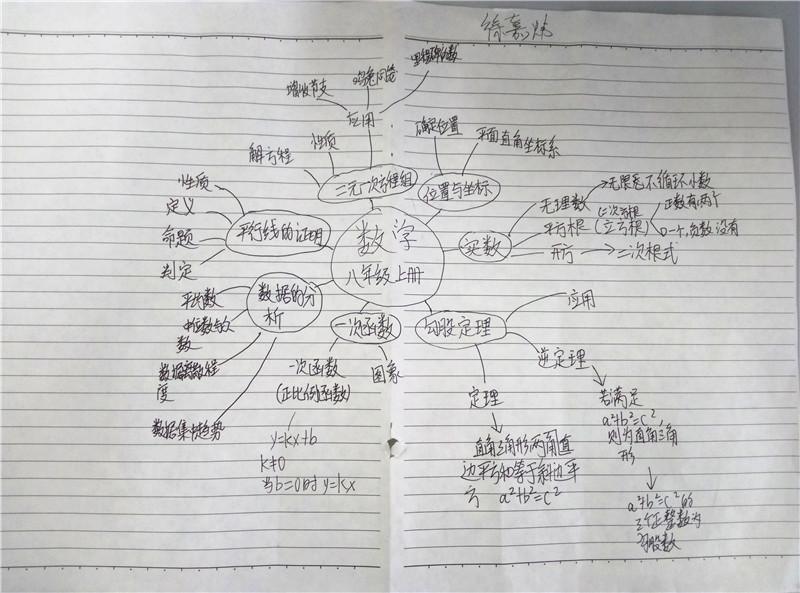 徐嘉炜
里程碑的数
鸡兔同笼
增收节支
应用
性质
解方程
二元一次方程组
确定位置
平面直角坐标系
位置与坐标
数学
八年级上册
实数
无理数
无限不循环小数
平方根
(二次方根)
(立方根)
正数有两个
0一个,负数没有
开方
二次根式
性质
定义
命题
判定
平行线的证明
数据的分
析
平均数
中位数与众
数
数据离散程
度
数据集中趋势
一次函数
一次函数
(正比例函数)
y=kx+b
k≠0
当b=0时y=kx
图象
勾股定理
应用
逆定理
若满足
a²+b²=c²,
则为直角三角
形
a²+b²=c²的
三个正整数为
勾股数
定理
直角三角形两角直
边平方和等于斜边平
方 a²+b²=c²